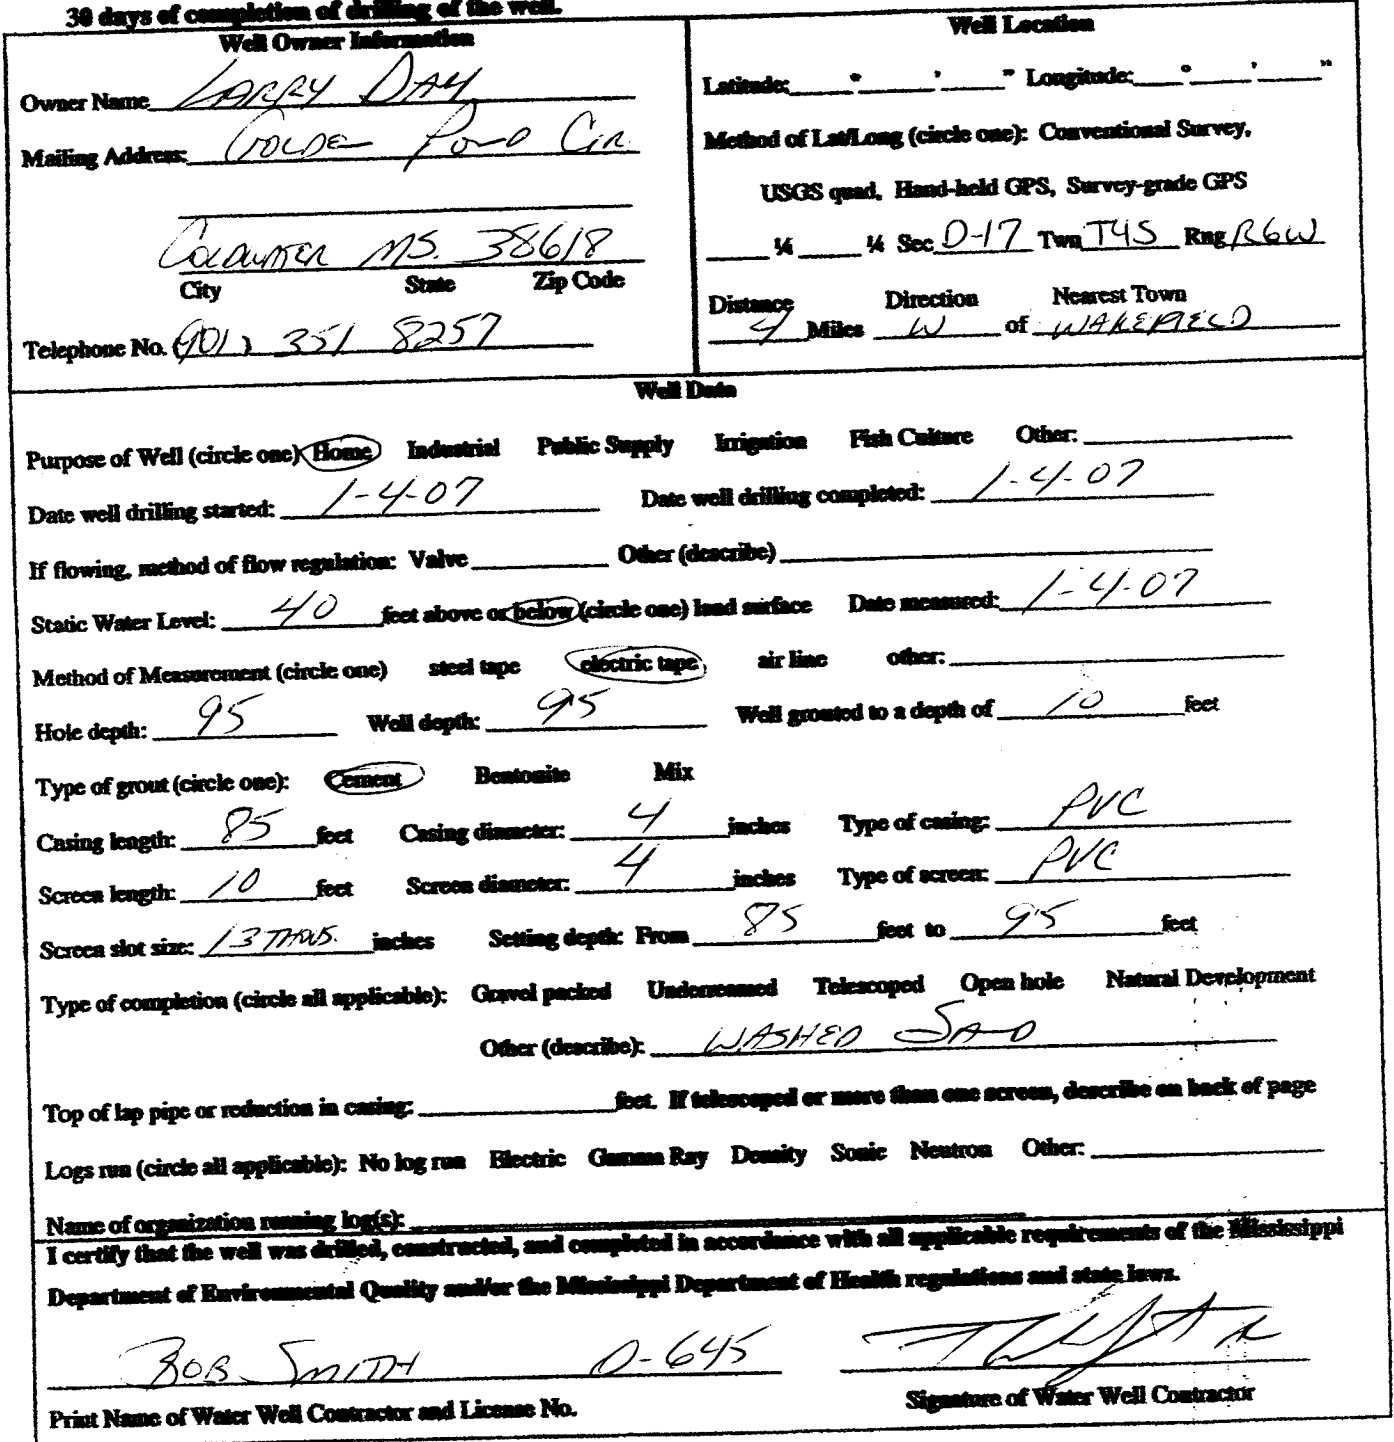 30 days of completion of drilling of the well.
Well Owner Information
Owner Name LARRY DAY
Mailing Address: GOLDEN POND CIR.
COLDWATER MS. 38618
City State Zip Code
Telephone No. (901) 351 8257
Well Location
Latitude: ° ' " Longitude: ° ' "
Method of Lat/Long (circle one): Conventional Survey,
USGS quad, Hand-held GPS, Survey-grade GPS
¼ ¼ Sec D-17 Twn T4S Rng R6W
Distance Direction Nearest Town
4 Miles W of WAKEFIELD
Well Data
Purpose of Well (circle one) Home Industrial Public Supply Irrigation Fish Culture Other:
Date well drilling started: 1-4-07 Date well drilling completed: 1-4-07
If flowing, method of flow regulation: Valve Other (describe)
Static Water Level: 40 feet above or below (circle one) land surface Date measured: 1-4-07
Method of Measurement (circle one) steel tape electric tape air line other:
Hole depth: 95 Well depth: 95 Well grouted to a depth of 10 feet
Type of grout (circle one): Cement Bentonite Mix
Casing length: 85 feet Casing diameter: 4 inches Type of casing: PVC
Screen length: 10 feet Screen diameter: 4 inches Type of screen: PVC
Screen slot size: 13 THOUS. inches Setting depth: From 85 feet to 95 feet
Type of completion (circle all applicable): Gravel packed Underreamed Telescoped Open hole Natural Development
Other (describe): WASHED SAND
Top of lap pipe or reduction in casing: feet. If telescoped or more than one screen, describe on back of page
Logs run (circle all applicable): No log run Electric Gamma Ray Density Sonic Neutron Other:
Name of organization running log(s):
I certify that the well was drilled, constructed, and completed in accordance with all applicable requirements of the Mississippi
Department of Environmental Quality and/or the Mississippi Department of Health regulations and state laws.
BOB SMITH 0-645
Print Name of Water Well Contractor and License No.
Signature of Water Well Contractor